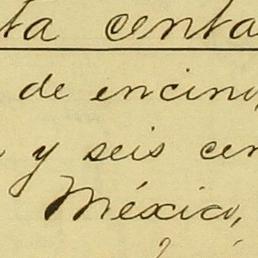 ta centa
de encino,
y seis cen
México,